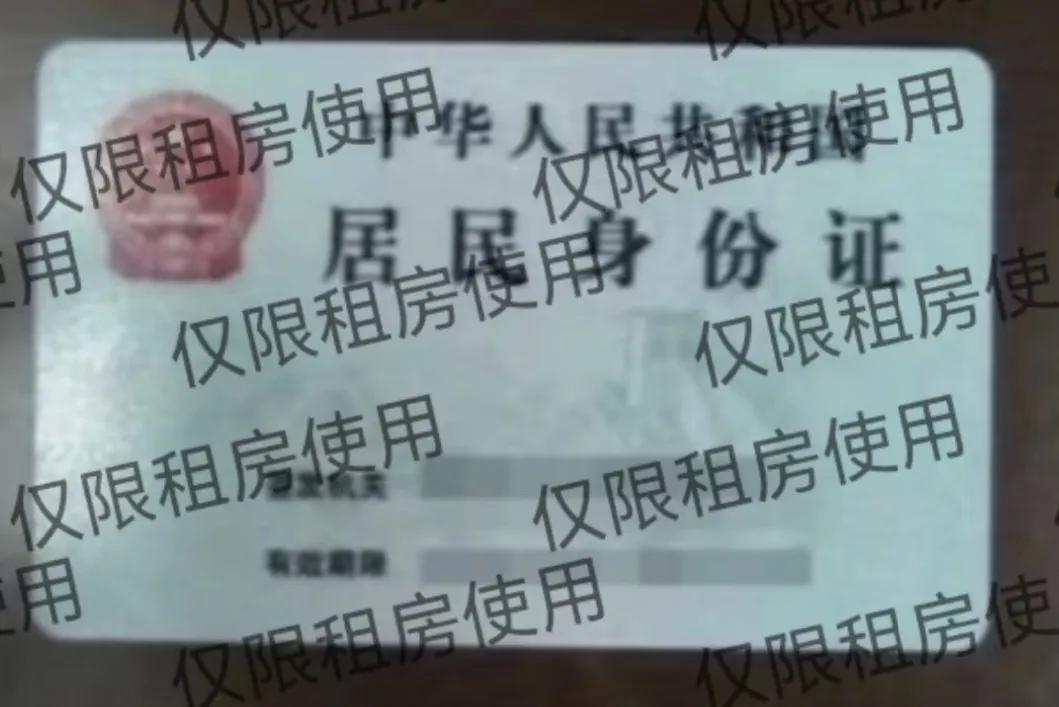 仅限租房使用 仅限租房使用
仅限租房使用 仅限租房使用
中华人民共和国
居民身份证
使用 仅限租房使用 仅限租房使
仅限租房使用 仅限租房使用
签发机关
有效期限
使用 仅限租房使用 仅限租房使